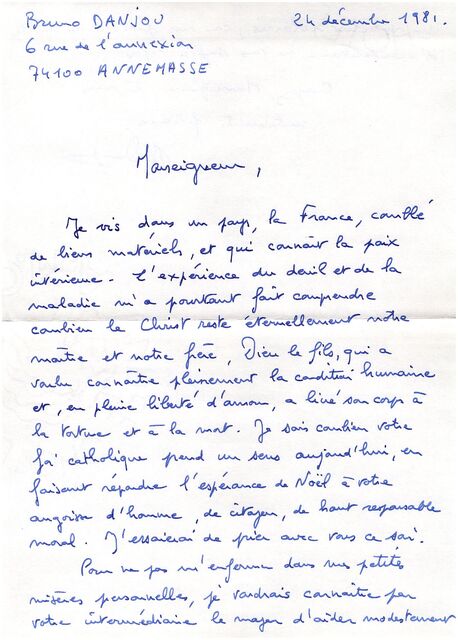 Bruno DANJOU
24 décembre 1981.
6 rue de l'annexion
74100 ANNEMASSE
Monseigneur,
Je vis dans un pays, la France, comblé
de biens matériels, et qui connaît la paix
intérieure. L'expérience du deuil et de la
maladie m'a pourtant fait comprendre
combien le Christ reste éternellement notre
maître et notre frère, Dieu le fils, qui a
voulu connaître pleinement la condition humaine
et, en pleine liberté d'amour, a livré son corps à
la torture et à la mort. Je sais combien votre
foi catholique prend un sens aujourd'hui, en
faisant répondre l'espérance de Noël à votre
angoisse d'homme, de citoyen, de haut responsable
moral. J'essaierai de prier avec vous ce soir.
Pour ne pas m'enfermer dans mes petites
misères personnelles, je voudrais connaître par
votre intermédiaire le moyen d'aider modestement